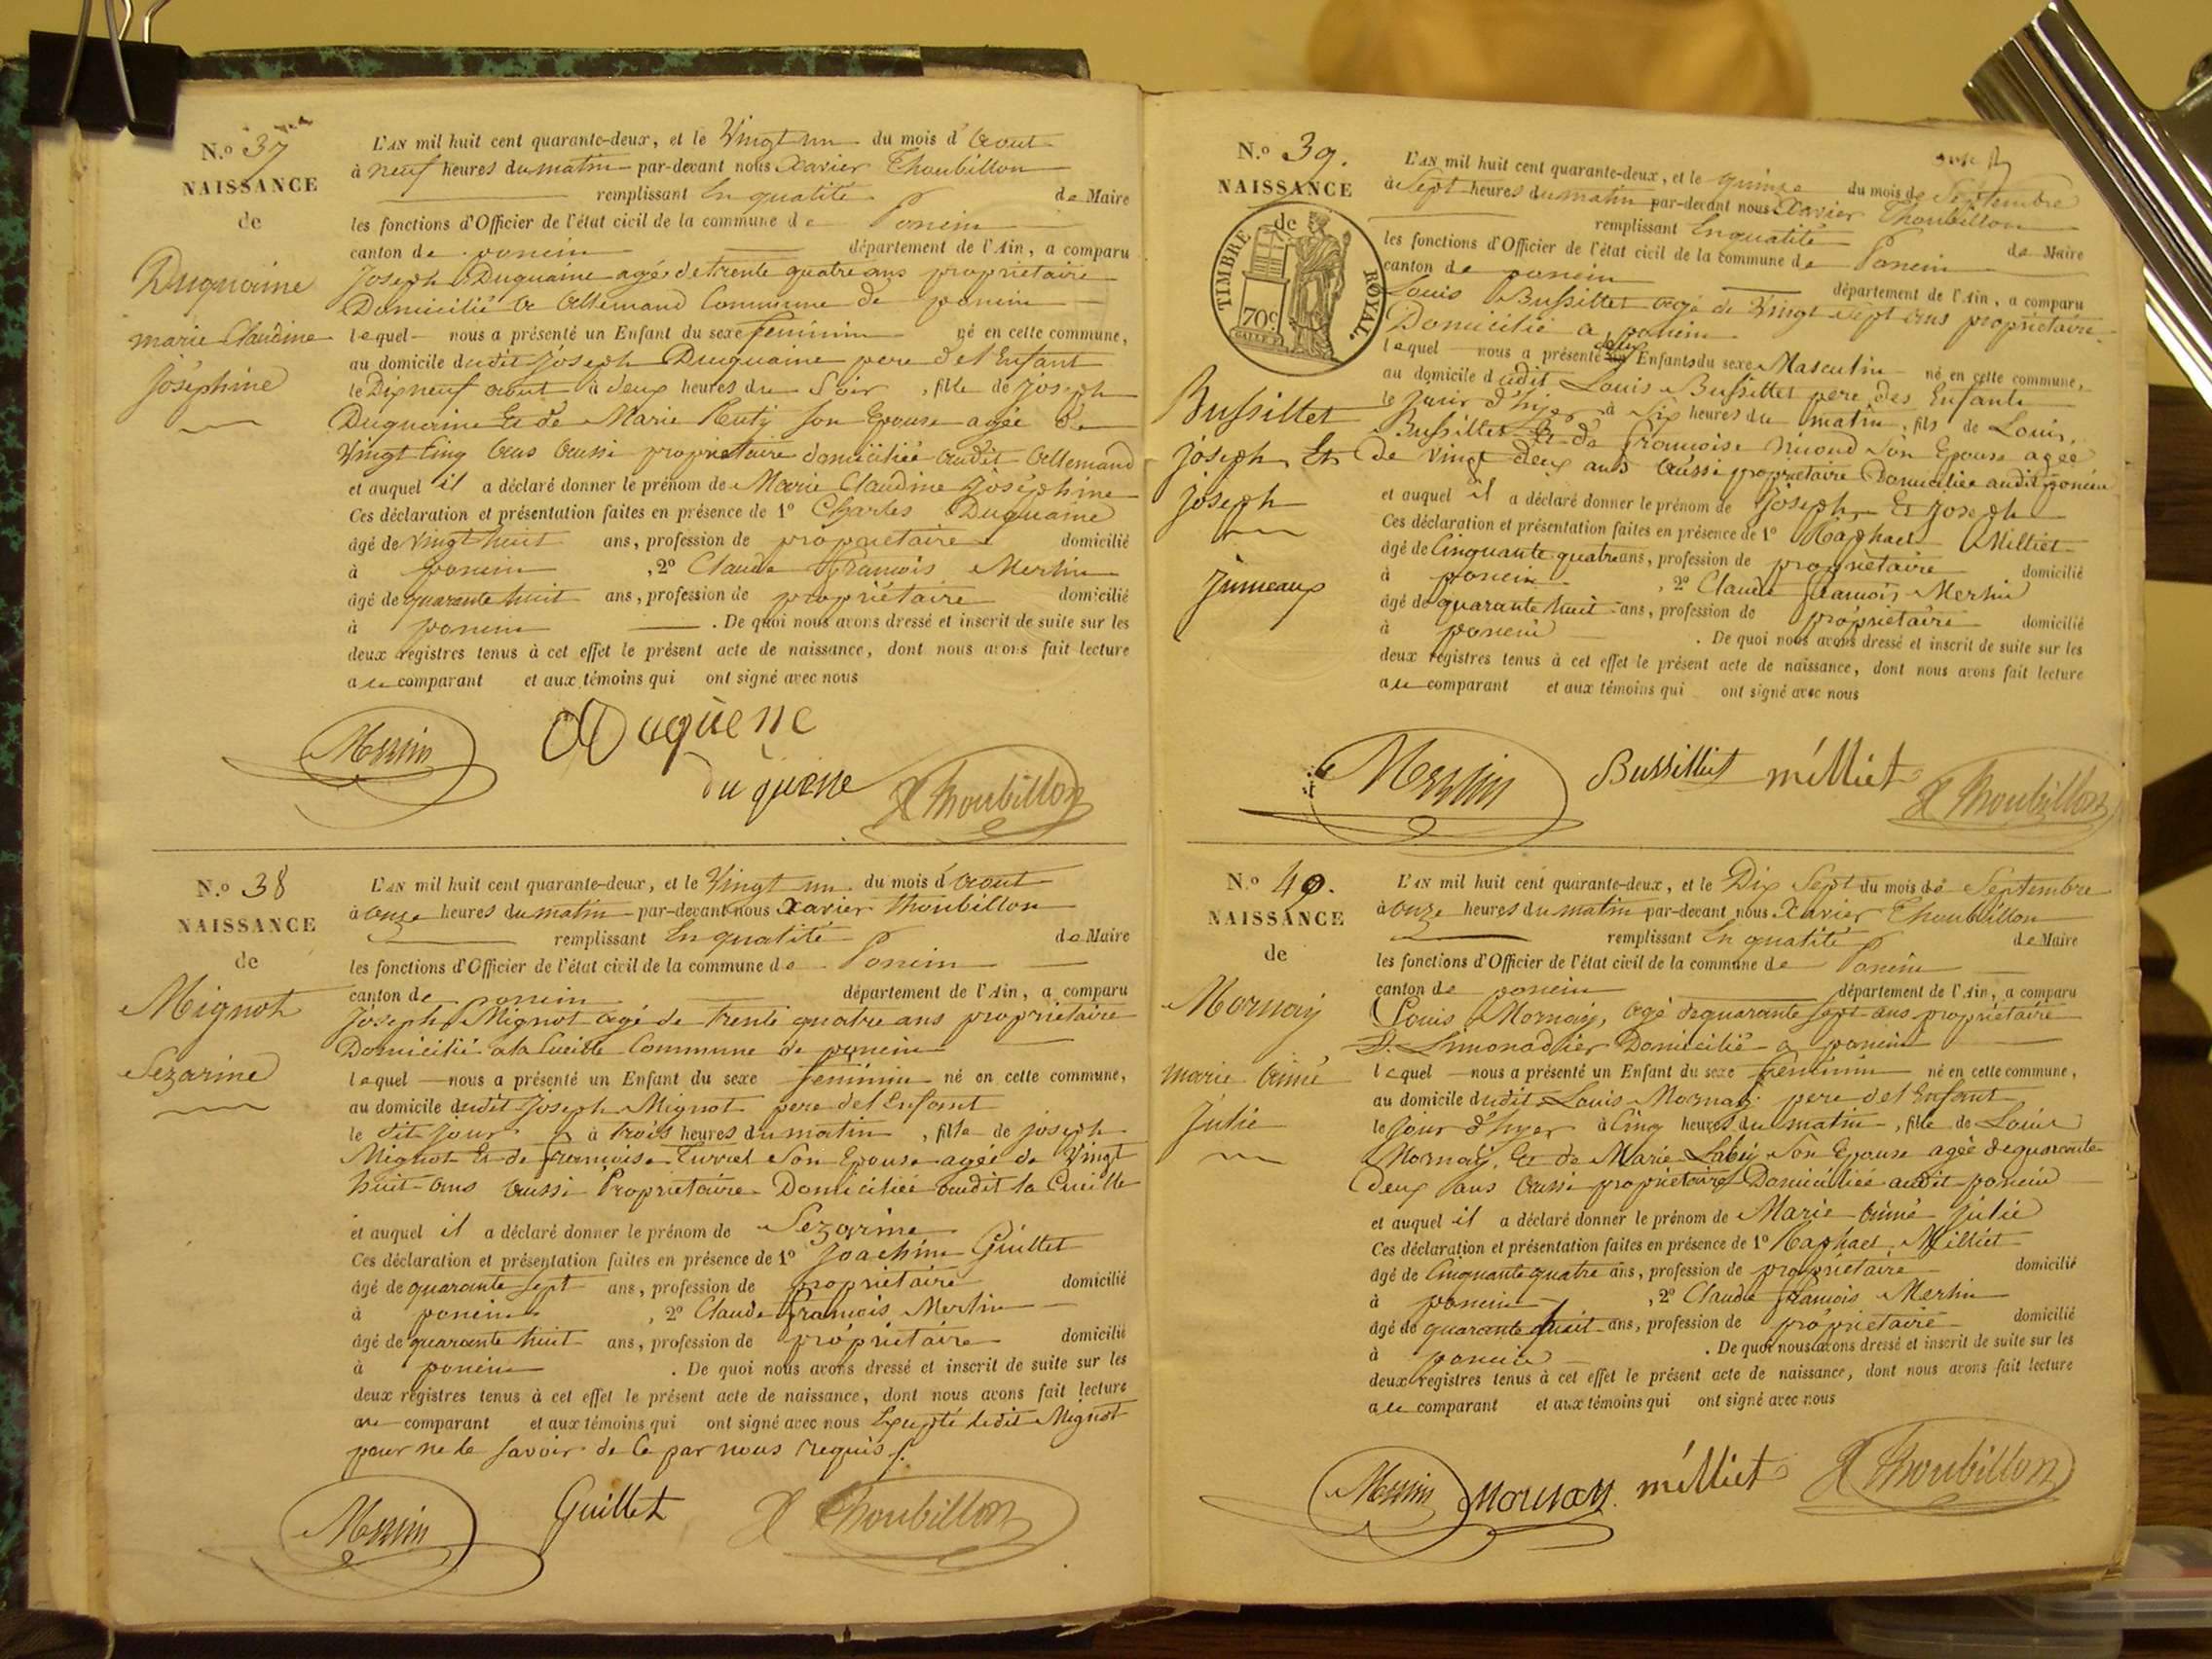 N.o 37
NAISSANCE
de
Duquaine
marie Claudine
Joséphine
L'AN mil huit cent quarante-deux, et le Vingt un du mois d'Aout
à neuf heures du matin par-devant nous Xavier Thoubillon
remplissant En qualité de Maire
les fonctions d'Officier de l'état civil de la commune de Poncin
canton de poncin département de l'Ain, a comparu
Joseph Duquaine agé de trente quatre ans propriétaire
Domicilié a Allemand Commune de poncin
lequel nous a présenté un Enfant du sexe feminin né en cette commune,
au domicile dudit Joseph Duquaine pere del Enfant
le Dix neuf aout à deux heures du Soir, fille de Joseph
Duquaine Et de Marie Ruty Son Epouse agée de
Vingt Cinq Ans Aussi propriétaire domiciliée audit Allemand
et auquel il a déclaré donner le prénom de Marie Claudine Joséphine
Ces déclaration et présentation faites en présence de 1o Charles Duquaine
âgé de vingt huit ans, profession de propriétaire domicilié
à poncin, 2o Claude François Merlin
âgé de quarante huit ans, profession de propriétaire domicilié
à poncin. De quoi nous avons dressé et inscrit de suite sur les
deux registres tenus à cet effet le présent acte de naissance, dont nous avons fait lecture
au comparant et aux témoins qui ont signé avec nous
Merlin Duquene
duquene X Thoubillon
N.o 38
NAISSANCE
de
Mignot
Sezarine
L'AN mil huit cent quarante-deux, et le Vingt un du mois d'Aout
à Onze heures du matin par-devant nous Xavier Thoubillon
remplissant En qualité de Maire
les fonctions d'Officier de l'état civil de la commune de Poncin
canton de poncin département de l'Ain, a comparu
Joseph Mignot agé de trente quatre ans propriétaire
Domicilié a la Cueille Commune de poncin
lequel nous a présenté un Enfant du sexe feminin né en cette commune,
au domicile dudit Joseph Mignot pere del Enfant
le dit jour à trois heures du matin, fille de joseph
Mignot Et de françoise Turrel Son Epouse agée de Vingt
huit Ans Aussi Propriétaire Domiciliée audit la Cueille
et auquel il a déclaré donner le prénom de Sezarine
Ces déclaration et présentation faites en présence de 1o Joachim Guillet
âgé de quarante sept ans, profession de propriétaire domicilié
à poncin, 2o Claude François Merlin
âgé de quarante huit ans, profession de propriétaire domicilié
à poncin. De quoi nous avons dressé et inscrit de suite sur les
deux registres tenus à cet effet le présent acte de naissance, dont nous avons fait lecture
au comparant et aux témoins qui ont signé avec nous Excepté ledit Mignot
pour ne le savoir de Ce par nous requis
Merlin Guillet X Thoubillon
N.o 39.
NAISSANCE
de
TIMBRE ROYAL
70c
Bussillet
joseph Et
joseph
jumeaux
L'AN mil huit cent quarante-deux, et le quinze du mois de Septembre
à Sept heures du matin par-devant nous Xavier Thoubillon
remplissant En qualité de Maire
les fonctions d'Officier de l'état civil de la commune de Poncin
canton de poncin département de l'Ain, a comparu
Louis Bussillet agé de Vingt Sept Ans propriétaire
Domicilié a poncin
lequel nous a présenté deux Enfants du sexe Masculin né en cette commune,
au domicile dudit Louis Bussillet pere des Enfants
le jour d'hyer à Six heures du matin, fils de Louis
Bussillet Et de françoise Nicoud Son Epouse agée
de vingt deux ans Aussi propriétaire Domiciliée audit poncin
et auquel il a déclaré donner le prénom de Joseph Et Joseph
Ces déclaration et présentation faites en présence de 1o Raphael Milliet
âgé de Cinquante quatre ans, profession de propriétaire domicilié
à poncin, 2o Claude françois Merlin
âgé de quarante huit ans, profession de propriétaire domicilié
à poncin. De quoi nous avons dressé et inscrit de suite sur les
deux registres tenus à cet effet le présent acte de naissance, dont nous avons fait lecture
au comparant et aux témoins qui ont signé avec nous
Merlin Bussillet milliet X Thoubillon
N.o 40.
NAISSANCE
de
Mornay
marie Aimé
julie
L'AN mil huit cent quarante-deux, et le Dix Sept du mois de Septembre
à Onze heures du matin par-devant nous Xavier Thoubillon
remplissant En qualité de Maire
les fonctions d'Officier de l'état civil de la commune de Poncin
canton de poncin département de l'Ain, a comparu
Louis Mornay, agé de quarante sept ans propriétaire
Et Limonadier Domicilié a poncin
lequel nous a présenté un Enfant du sexe feminin né en cette commune,
au domicile dudit Louis Mornay pere del Enfant
le jour d'hyer à Cinq heures du matin, fille de Louis
Mornay Et de Marie Labeÿ Son Epouse agée de quarante
deux ans Aussi propriétaire Domiciliée audit poncin
et auquel il a déclaré donner le prénom de Marie Aimé julie
Ces déclaration et présentation faites en présence de 1o Raphael Milliet
âgé de Cinquante quatre ans, profession de propriétaire domicilié
à poncin, 2o Claude françois Merlin
âgé de quarante huit ans, profession de propriétaire domicilié
à poncin. De quoi nous avons dressé et inscrit de suite sur les
deux registres tenus à cet effet le présent acte de naissance, dont nous avons fait lecture
au comparant et aux témoins qui ont signé avec nous
Merlin Mornay milliet X Thoubillon